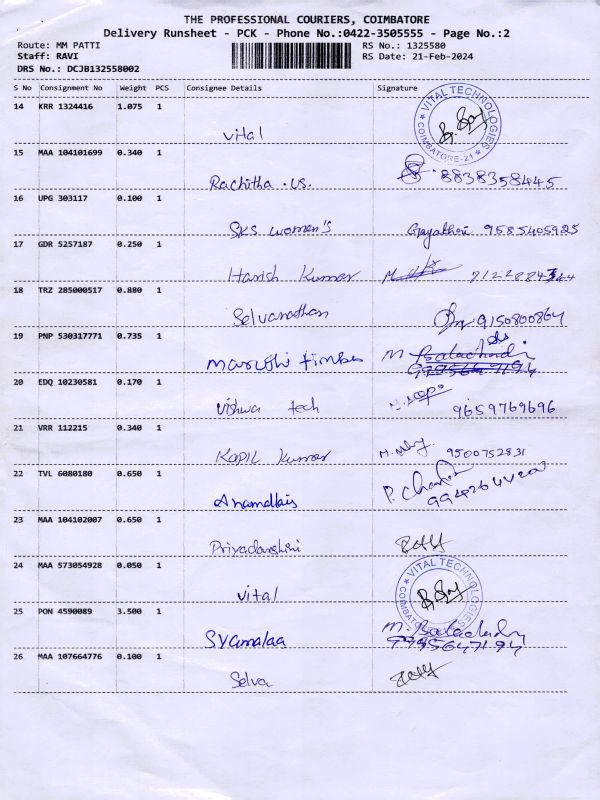 THE PROFESSIONAL COURIERS, COIMBATORE
Delivery Runsheet - PCK - Phone No.:0422-3505555 - Page No.:2
Route: MM PATTI RS No.: 1325580
Staff: RAVI RS Date: 21-Feb-2024
DRS No.: DCJB132558002
S No Consignment No Weight PCS Consignee Details Signature
14 KRR 1324416 1.075 1
vital VITAL TECHNOLOGIES COIMBATORE-21
15 MAA 104101699 0.340 1
Rachitha .us. 8838358445
16 UPG 303117 0.100 1
SKS women's Gayathri 9585405925
17 GDR 5257187 0.250 1
Harish Kumar
18 TRZ 285000517 0.880 1
Selvanathan 9150800864
19 PNP 530317771 0.735 1
maruthi timber M Balachandi
20 EDQ 10230581 0.170 1
vishwa tech 9659769696
21 VRR 112215 0.340 1
Kapil Kumar 9500752831
22 TVL 6080180 0.650 1
Anamallais
23 MAA 104102007 0.650 1
Priyadarshini
24 MAA 573054928 0.050 1
vital VITAL TECHNOLOGIES COIMBATORE
25 PON 4590089 3.500 1
Syamalaa
26 MAA 107664776 0.100 1
Selva